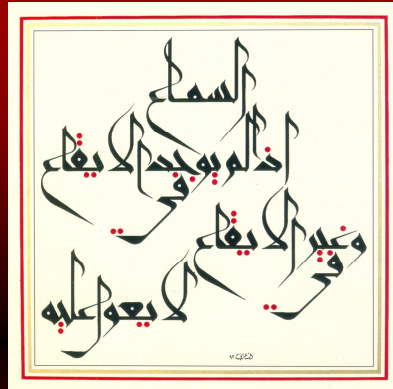 السماع
اذا لم يوجد في الايقاع
وفي غير الايقاع
لا يعول عليه